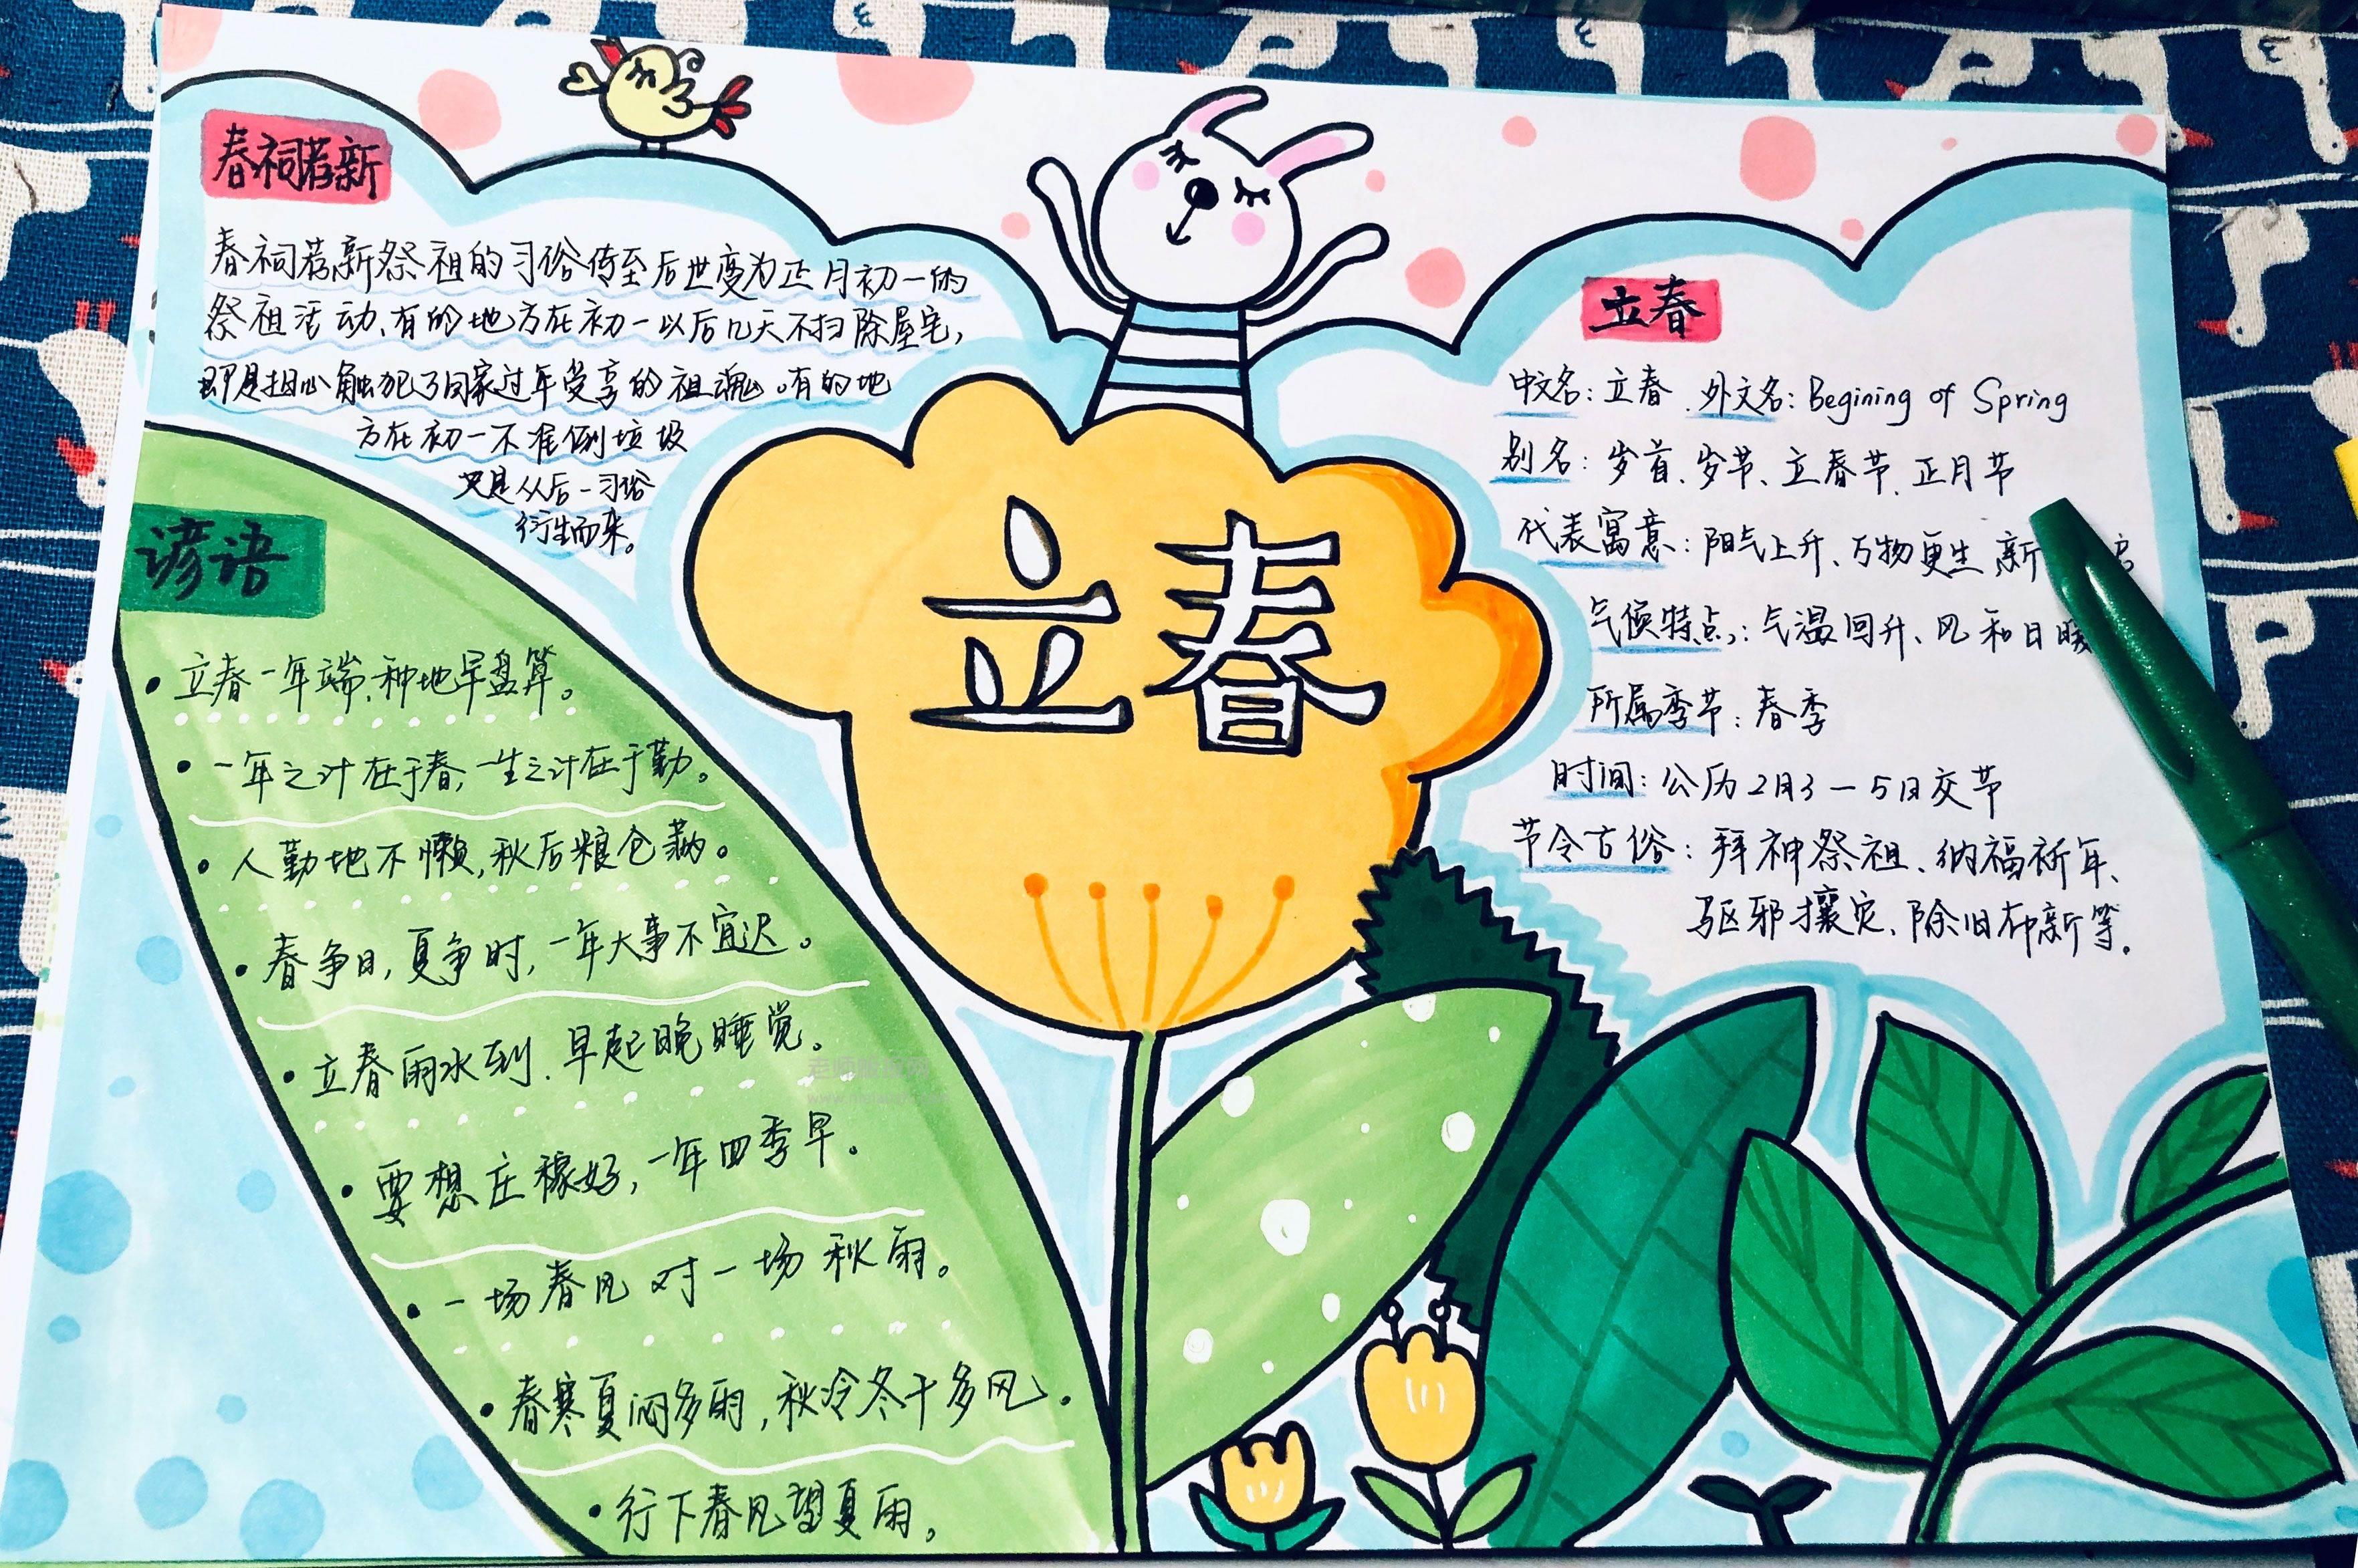 春祠荐新
春祠荐新祭祖的习俗传至后世变为正月初一的
祭祖活动、有的地方在初一以后几天不扫除屋宅,
即是担心触犯了回家过年受享的祖魂。有的地
方在初一不准倒垃圾
也是从后一习俗
衍生而来。
谚语
·立春一年端、种地早盘算。
·一年之计在于春,一生之计在于勤。
·人勤地不懒,秋后粮仓满。
·春争日,夏争时,一年大事不宜迟。
·立春雨水到、早起晚睡觉。
·要想庄稼好,一年四季早。
·一场春风对一场秋雨。
·春寒夏闷多雨,秋冷冬干多风。
·行下春风望夏雨。
立春
立春
中文名:立春、外文名:Begining of Spring
别名:岁首、岁节、立春节、正月节
代表寓意:阳气上升、万物更生、新
气候特点:气温回升、风和日暖
所属季节:春季
时间:公历2月3—5日交节
节令古俗:拜神祭祖、纳福祈年、
驱邪攘灾、除旧布新等.